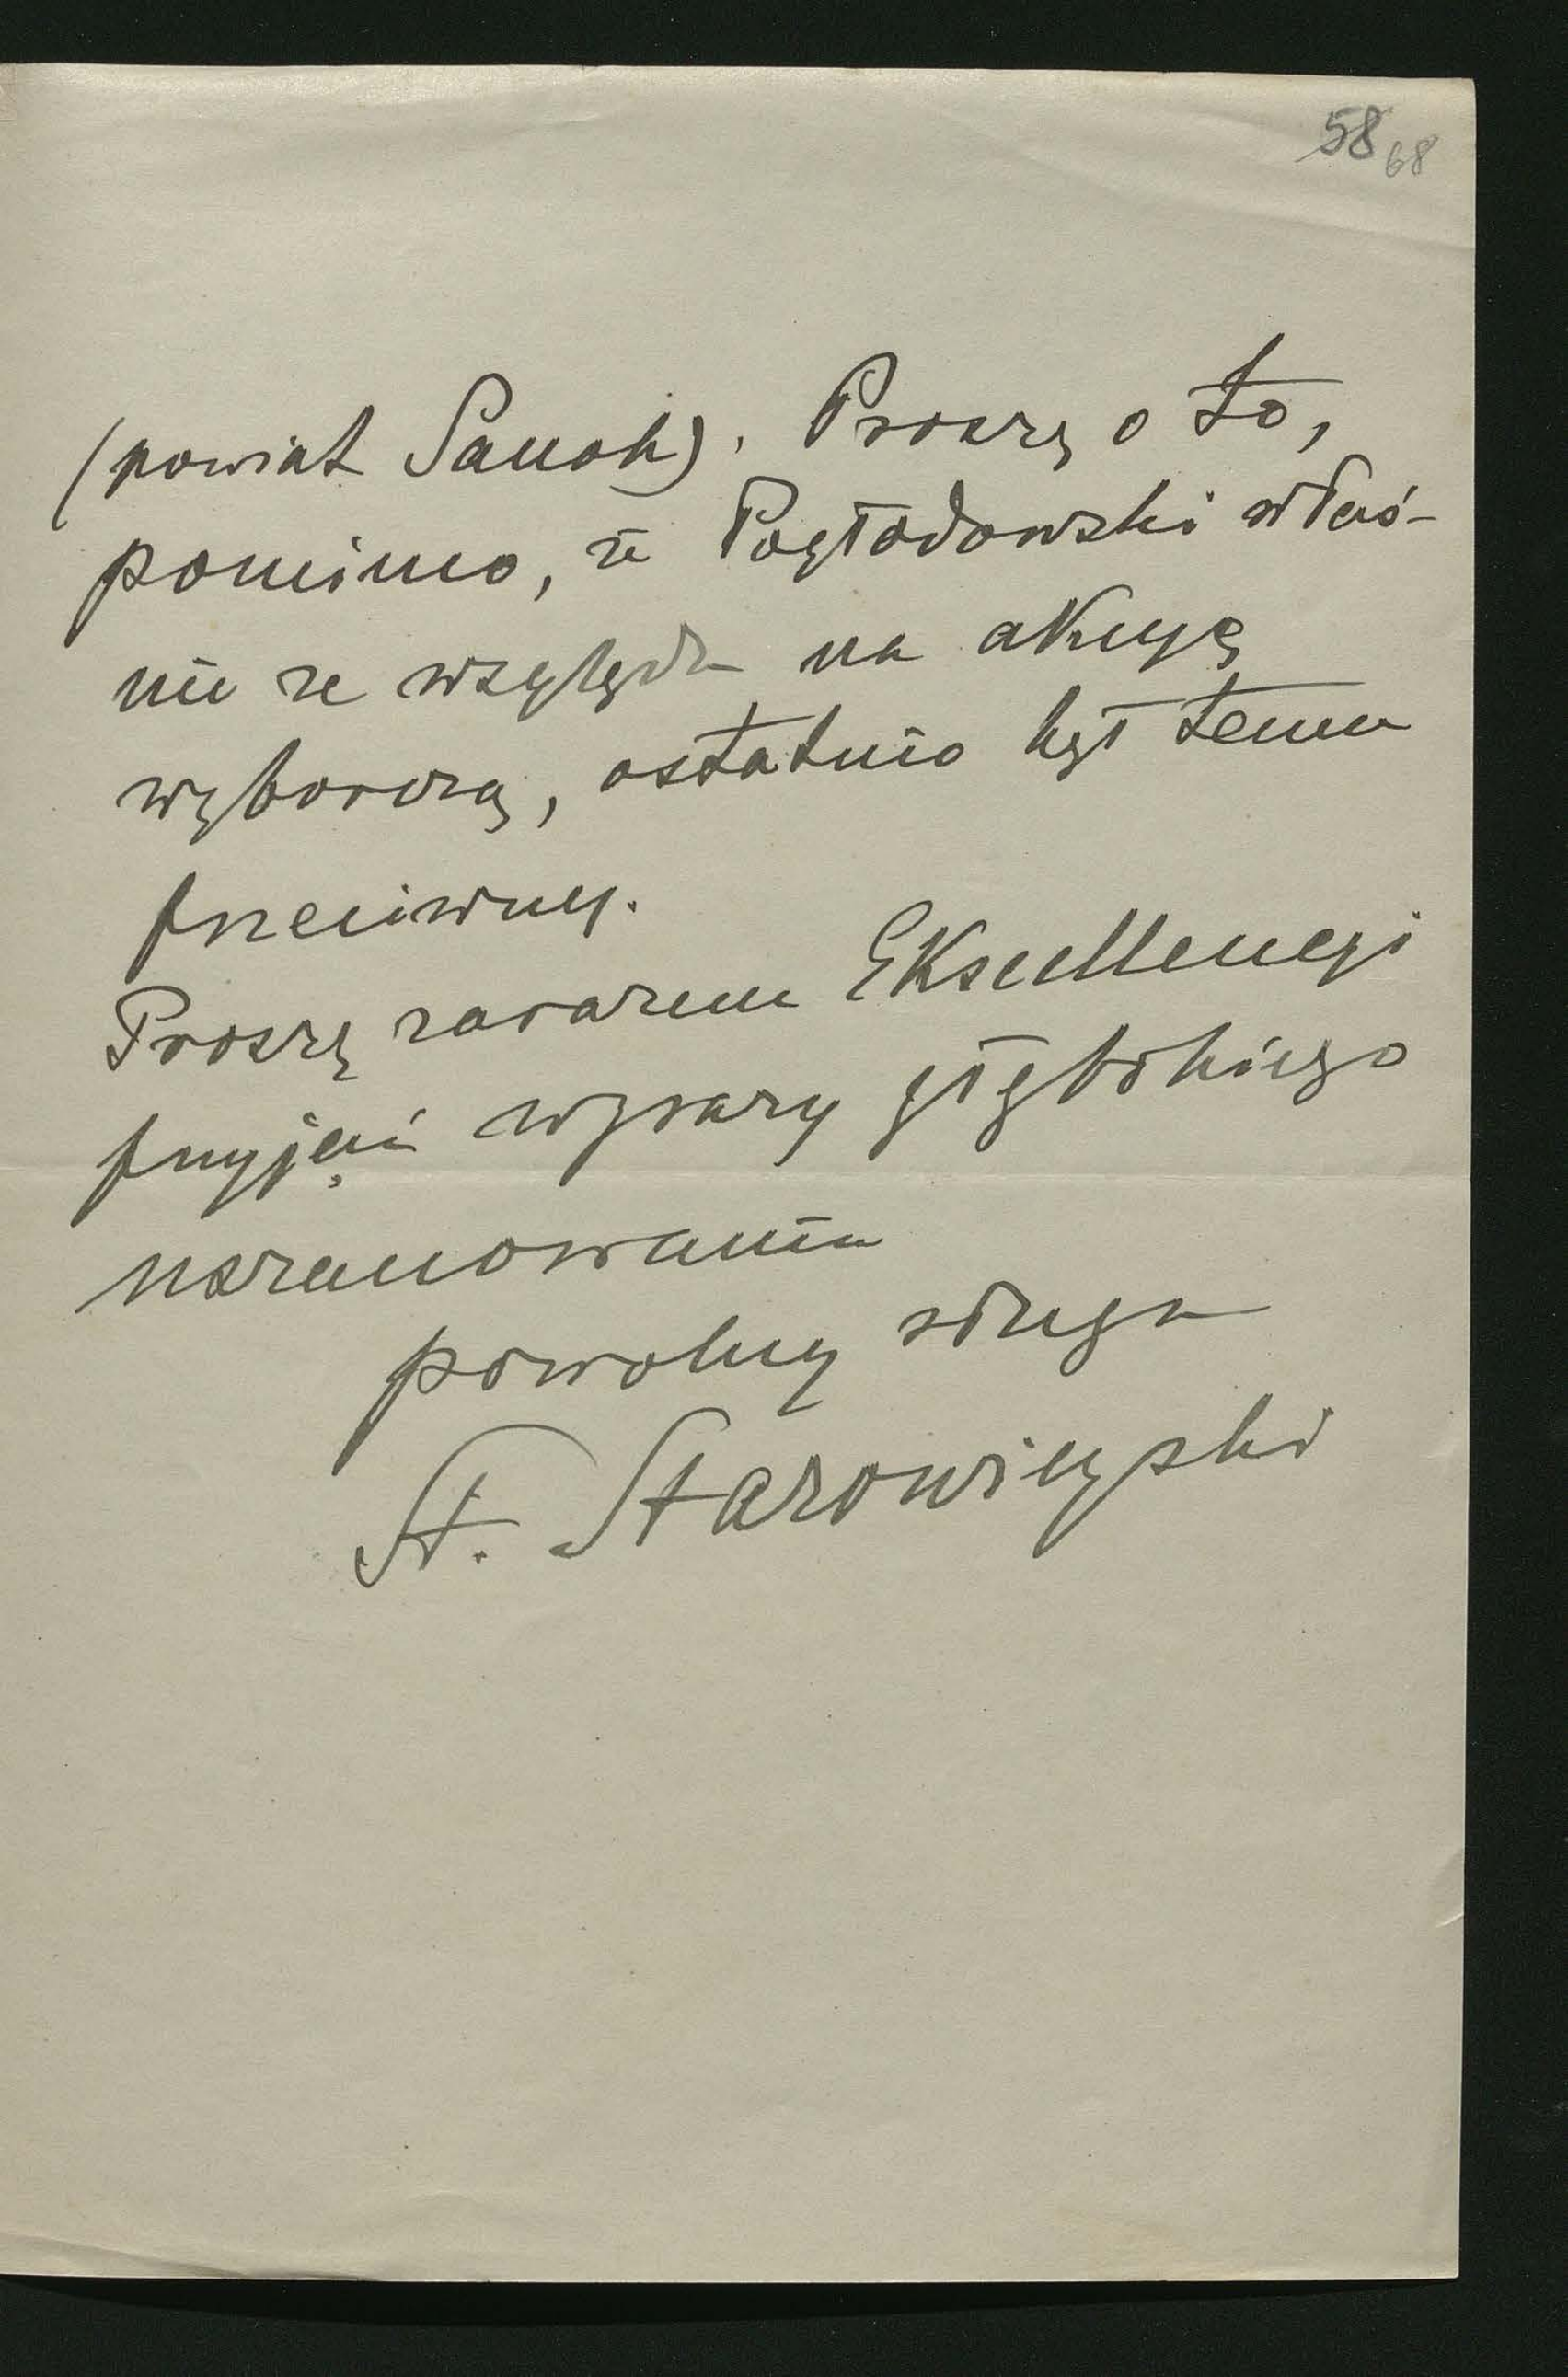 58 68
(powiat Sanok). Proszę o to,
pomimo, że Pogłodowski właś-
nie ze względu na akcyę
wyborczą, ostatnio był temu
przeciwny.
Proszę zarazem Ekscellencyi
przyjąć wyrazy głębokiego
uszanowania
powolny sługa
St. Starowieyski